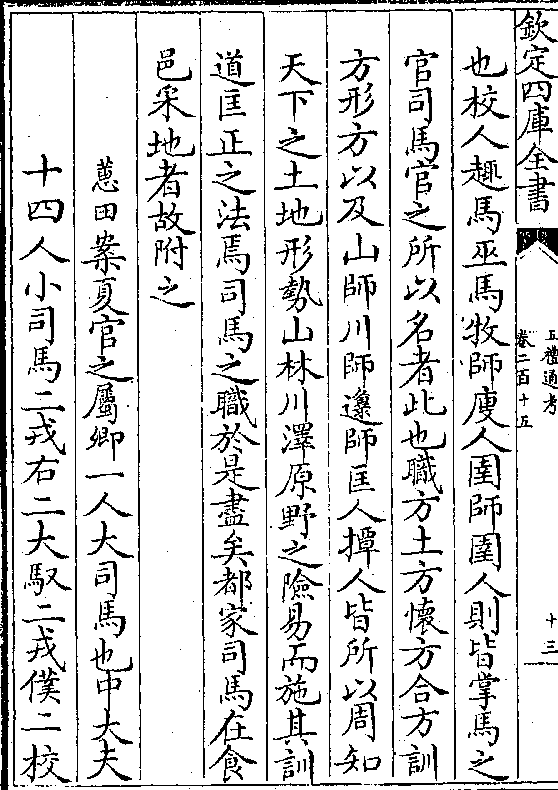 欽定四庫全書
五禮通考
卷二百十五
十三
也校人趣馬巫馬牧師廋人圉師圉人則皆掌馬之
官司馬官之所以名者此也職方土方懷方合方訓
方形方以及山師川師邍師匡人撢人皆所以周知
天下之土地形勢山林川澤原野之險易而施其訓
道匡正之法焉司馬之職於是盡矣都家司馬在食
邑采地者故附之
蕙田案夏官之屬卿一人大司馬也中大夫
十四人小司馬二戎右二大馭二戎僕二校